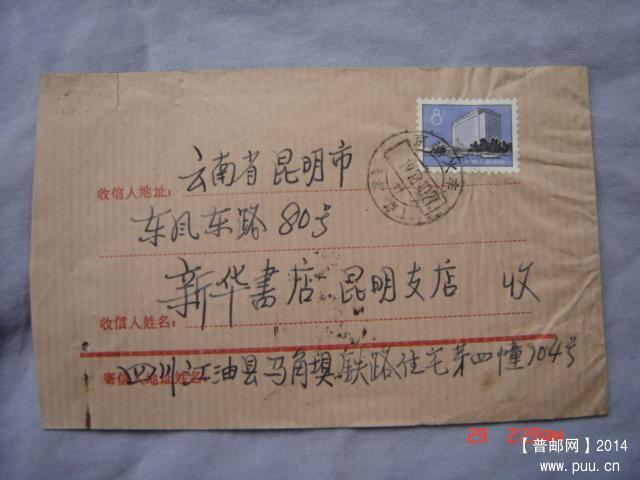 8分
收信人地址：云南省昆明市
东风东路80号
新华書店 昆明支店 收
收信人姓名：
寄信人地址姓名：
四川江油县马角坝铁路住宅第四幢104号
29 2:29AM
【普邮网】2014
www.puu.cn